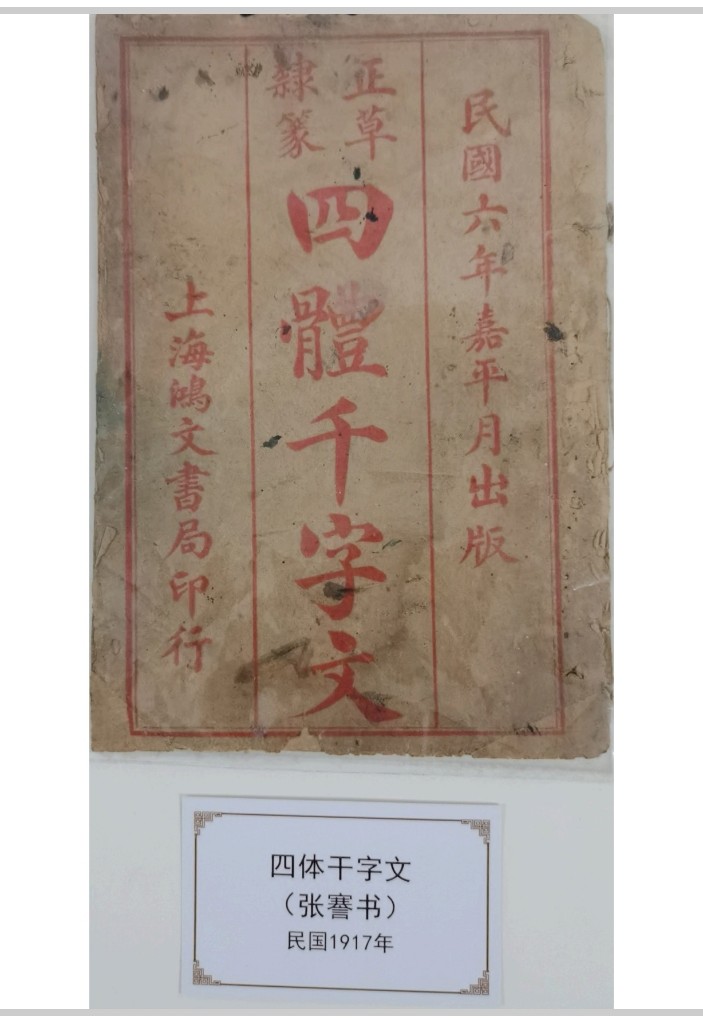 民國六年嘉平月出版
正草
隸篆
四體千字文
上海鴻文書局印行
四体干字文
（张謇书）
民国1917年